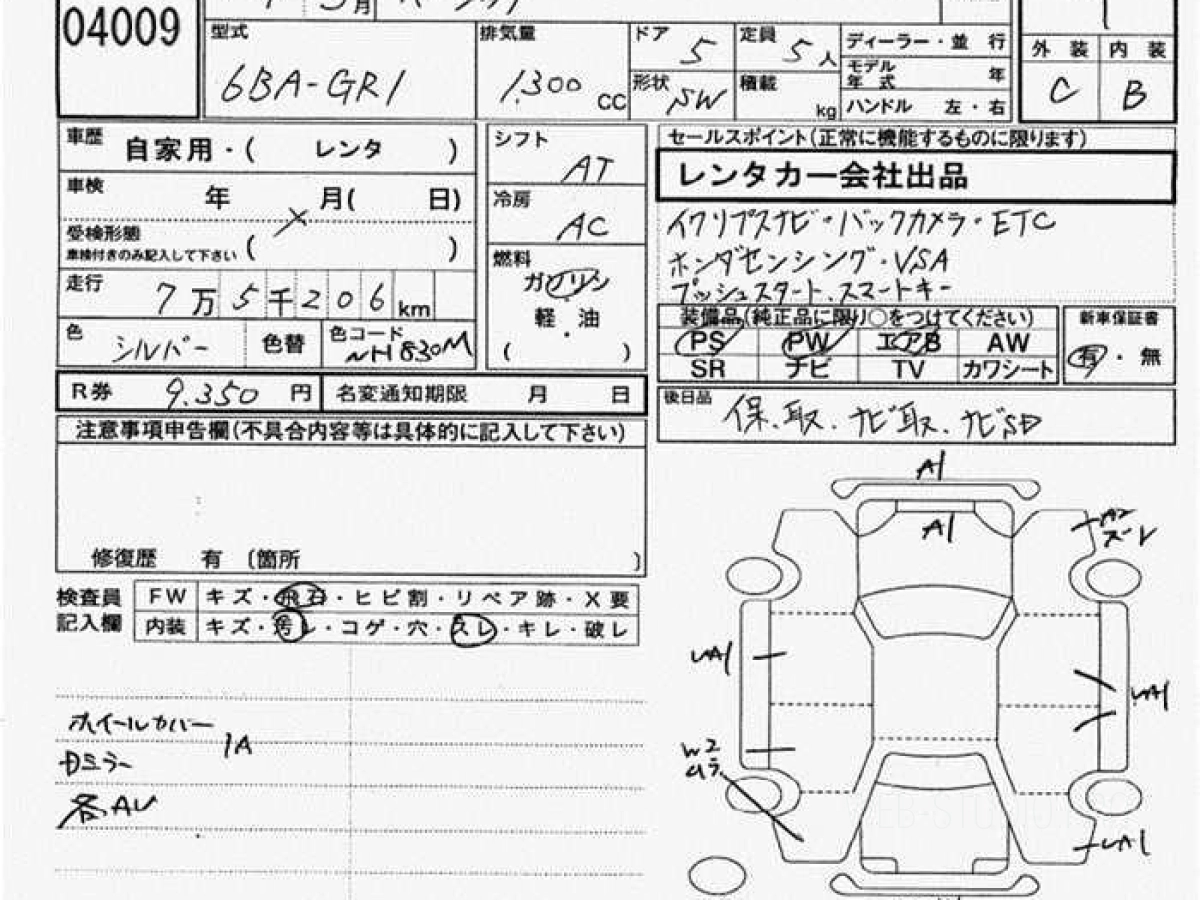 04009
型式
6BA-GR1
排気量
1,300 CC
ドア
5
定員
5人
ディーラー・並 行
モデル
年 式 年
ハンドル 左・右
形状
SW
積載
kg
外 装 内 装
C B
車歴
自家用・( レンタ )
車検
年 月( 日)
×
受検形態
車検付きのみ記入して下さい ( )
走行
7万5千206 km
色
シルバー
色替
色コード
NH830M
シフト
AT
冷房
AC
燃料
ガソリン
軽・油
( )
セールスポイント(正常に機能するものに限ります)
レンタカー会社出品
イクリプスナビ・バックカメラ・ETC
ホンダセンシング・VSA
プッシュスタート、スマートキー
装備品(純正品に限り○をつけてください)
PS PW エアB AW
SR ナビ TV カワシート
新車保証書
有・無
R券 9.350 円
名変通知期限 月 日
後日品
保、取、ナビ取、ナビSD
注意事項申告欄(不具合内容等は具体的に記入して下さい)
修復歴 有 〔箇所 〕
検査員
記入欄
FW キズ・飛石・ヒビ割・リペア跡・X要
内装 キズ・汚レ・コゲ・穴・スレ・キレ・破レ
ホイールカバー
1A
Dミラー
各AU
A1
A1
A2
ズレ
UA1
UA1
W2
ムラ
UA1